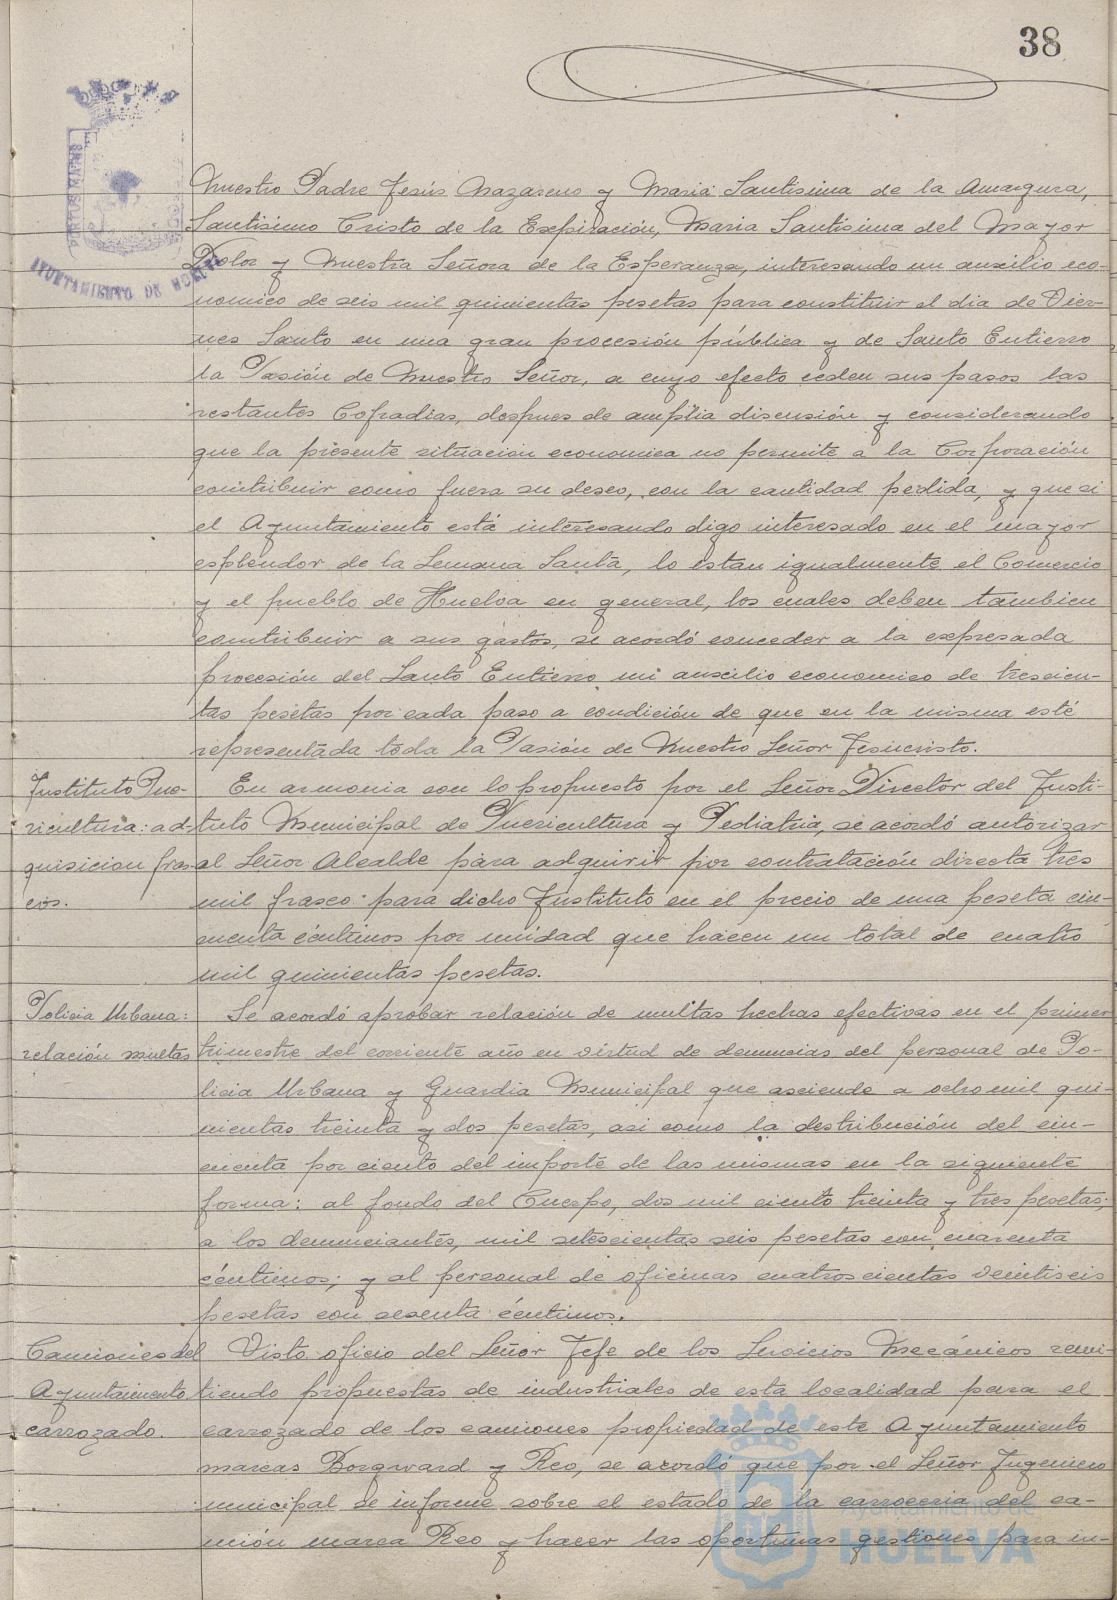 38
PORTUS MARIS
AYUNTAMIENTO DE HUELVA
Nuestro Padre Jesús Nazareno y Maria Santisima de la Amargura,
Santisimo Cristo de la Expiración, Maria Santisima del Mayor
Dolor y Nuestra Señora de la Esperanza, interesando un auxilio eco-
nomico de seis mil quinientas pesetas para constituir el dia de Vier-
nes Santo en una gran procesión pública y de Santo Entierro
la Pasión de Nuestro Señor, a cuyo efecto ceden sus pasos las
restantes Cofradias, despues de amplia discusión y considerando
que la presente situacion economica no permite a la Corporación
contribuir como fuera su deseo, con la cantidad pedida, y que si
el Ayuntamiento está interesando digo interesado en el mayor
esplendor de la Semana Santa, lo estan igualmente el Comercio
y el pueblo de Huelva en general, los cuales deben tambien
contribuir a sus gastos, se acordó conceder a la expresada
procesión del Santo Entierro un auxilio economico de trescien-
tas pesetas por cada paso a condición de que en la misma esté
representada toda la Pasión de Nuestro Señor Jesucristo.
Instituto Pue-
ricultura: ad-
quisicion fras-
cos.
En armonia con lo propuesto por el Señor Director del Insti-
tuto Municipal de Puericultura y Pediatria, se acordó autorizar
al Señor Alcalde para adquirir por contratación directa tres
mil frasco para dicho Instituto en el precio de una peseta cin-
cuenta céntimos por unidad que hacen un total de cuatro
mil quinientas pesetas.
Policia Urbana:
relación multas
Se acordó aprobar relación de multas hechas efectivas en el primer
trimestre del corriente año en virtud de denuncias del personal de Po-
licia Urbana y Guardia Municipal que asciende a ocho mil qui-
nientas treinta y dos pesetas, asi como la distribución del cin-
cuenta por ciento del importe de las mismas en la siguiente
forma: al fondo del Cuerpo, dos mil ciento treinta y tres pesetas;
a los denunciantes, mil setescientas seis pesetas con cuarenta
céntimos; y al personal de oficinas cuatroscientas veintiseis
pesetas con sesenta céntimos.
Camiones del
Ayuntamiento
carrozado.
Visto oficio del Señor Jefe de los Servicios Mecánicos remi-
tiendo propuestas de industriales de esta localidad para el
carrozado de los camiones propiedad de este Ayuntamiento
marcas Borgward y Reo, se acordó que por el Señor Ingeniero
municipal se informe sobre el estado de la carroceria del ca-
mión marca Reo y hacer las oportunas gestiones para in-
Ayuntamiento de
HUELVA